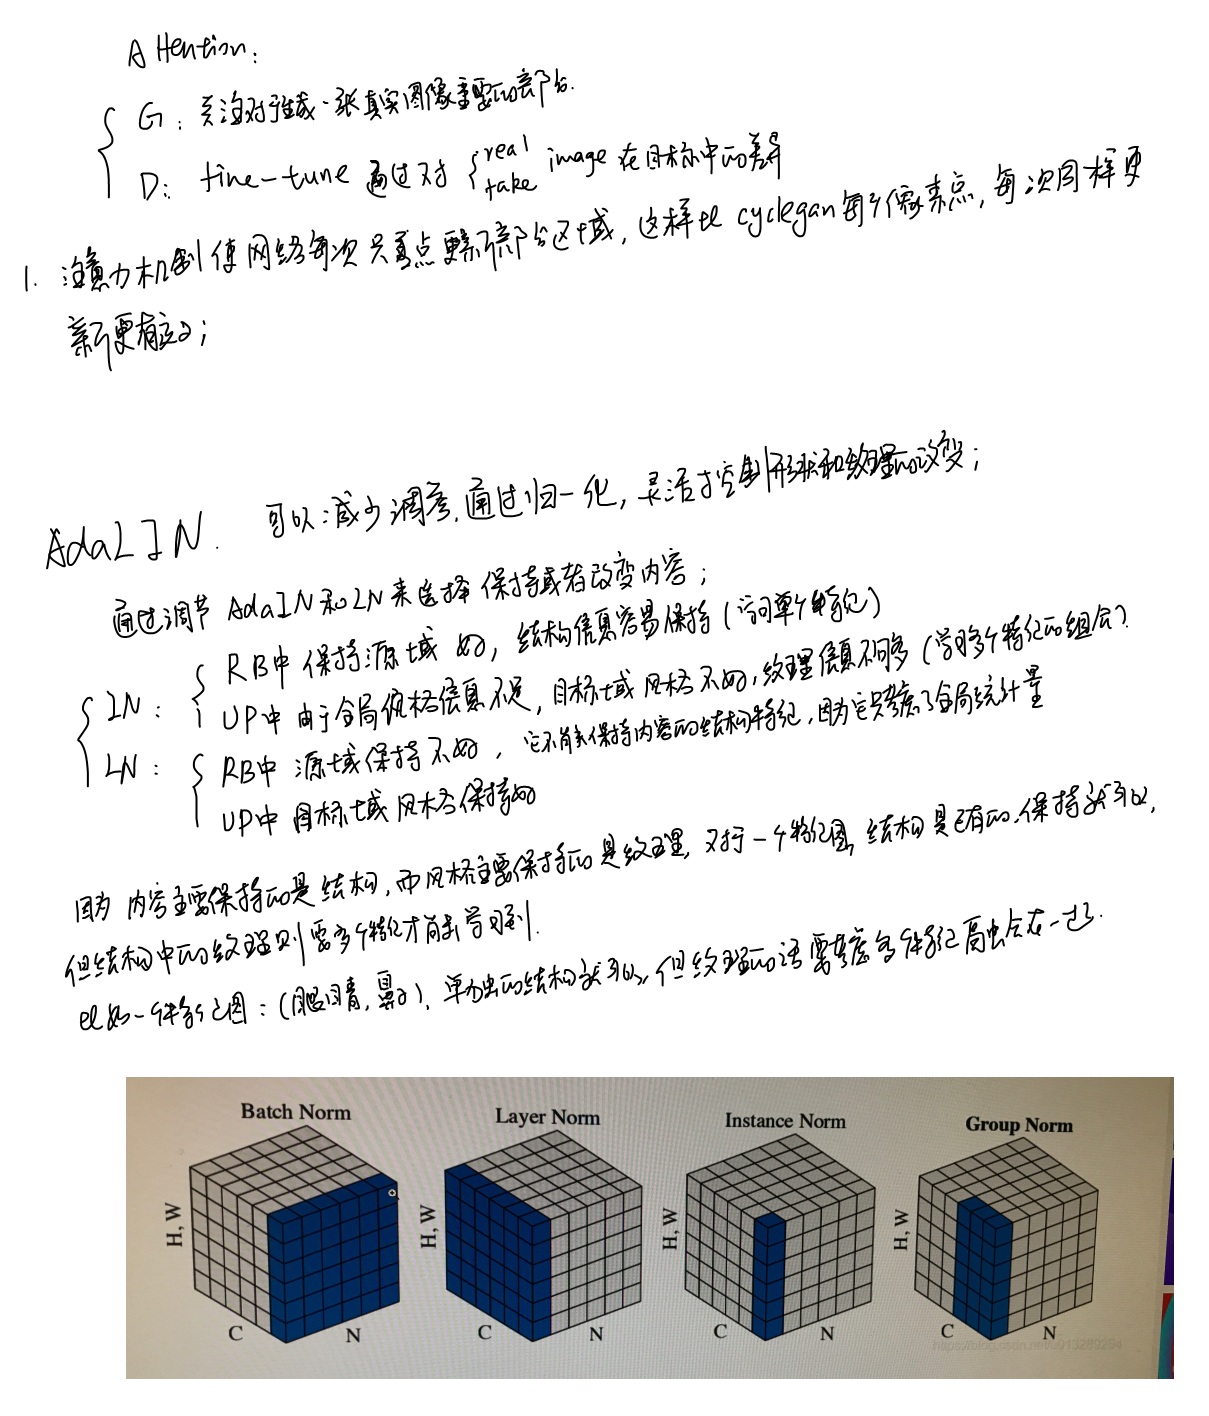 Attention:
G: 关注对于生成一张真实图像重要的部分.
D: fine-tune 通过对 { real fake image 在目标中的差异
1. 注意力机制使网络每次只着点更新部分区域, 这样比 cyclegan 每个像素点, 每次同样更
新更有意义;
AdaLIN. 可以减少调参, 通过归一化, 灵活控制形状和纹理的改变;
通过调节 AdaIN 和 LN 来选择保持或者改变内容;
IN: { RB中 保持源域 好, 结构信息容易保持 (访问单个特征)
UP中 由于全局风格信息不足, 目标域风格不好, 纹理信息不够多 (学习多个特征的组合)
LN: { RB中 源域保持不好, 它不能保持内容的结构特征, 因为它只考虑了全局统计量
UP中 目标域风格保持好
因为 内容主要保持的是结构, 而风格主要保持的是纹理, 对于一个特征图, 结构是已有的, 保持就可以,
但结构中的纹理则需多个特征才能学习到.
比如一个特征图: (眼睛, 鼻子), 单独的结构就可以, 但纹理的话需考虑各个特征融合在一起.
Batch Norm
Layer Norm
Instance Norm
Group Norm
H, W
C
N
H, W
C
N
H, W
C
N
H, W
C
N